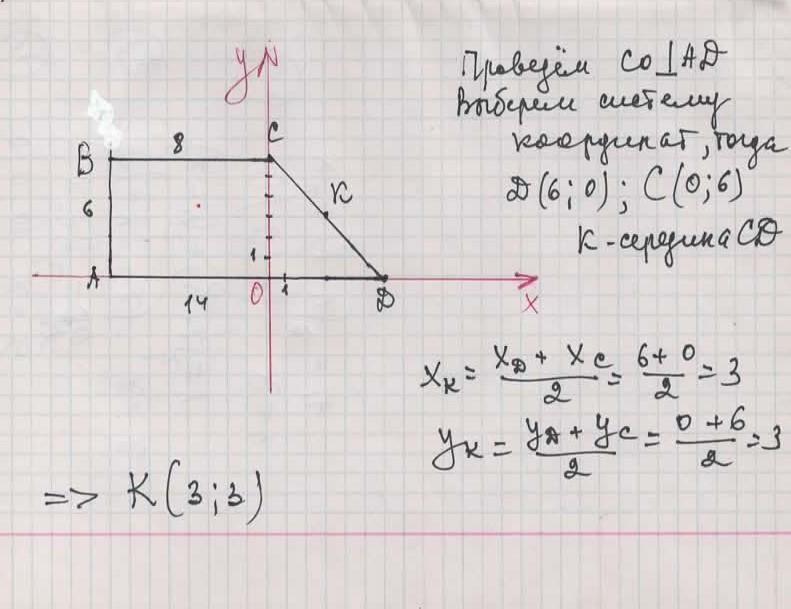 y
N
Проведём CO⊥AD
Выберем систему
координат, тогда
D(6;0); C(0;6)
K-середина CD
B
8
C
K
6
1
A
14
O
1
D
X
x_K = (x_D + x_C)/2 = (6+0)/2 = 3
y_K = (y_D + y_C)/2 = (0+6)/2 = 3
=> K(3;3)